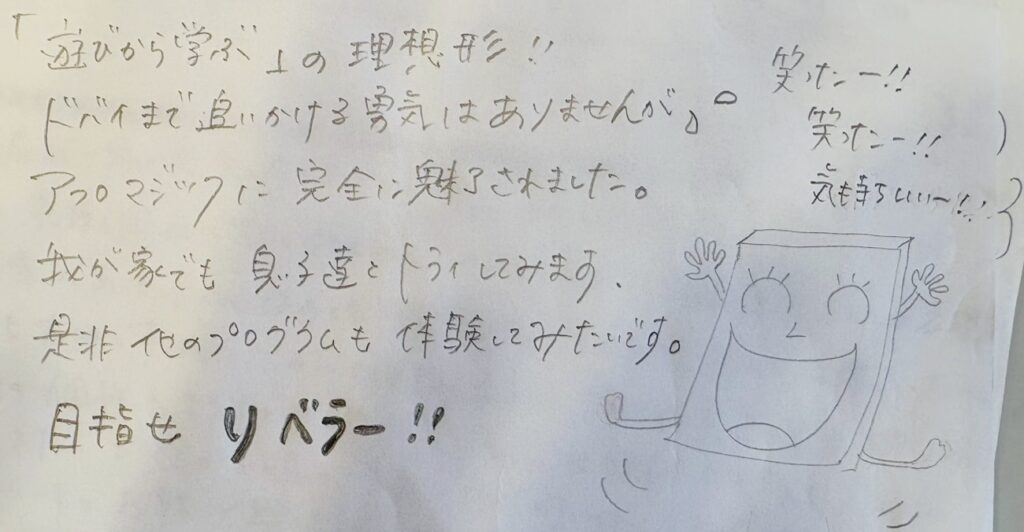 「遊びから学ぶ」の理想形!!
ドバイまで追いかける勇気はありませんが」。
アフロマジックに完全に魅了されました。
我が家でも息子達とトライしてみます、
是非他のプログラムも体験してみたいです。
目指せ リベラー!!
笑ったー!!
笑ったー!!
気持ちいいー!!